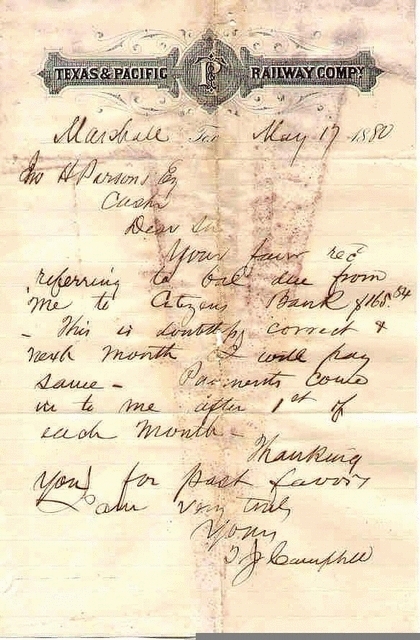 TEXAS & PACIFIC T P RAILWAY COMPY
Marshall Tex May 17 1880
Jno H Parsons Eq
Cash
Dear Sir
Your favor recd
referring to bal due from
me to Citizens Bank $165.54
- This is doubtless correct &
next month I will pay
same - Payments come
in to me after 1st of
each month -
Thanking
you for past favors
I am very truly
Yours
T J Campbell